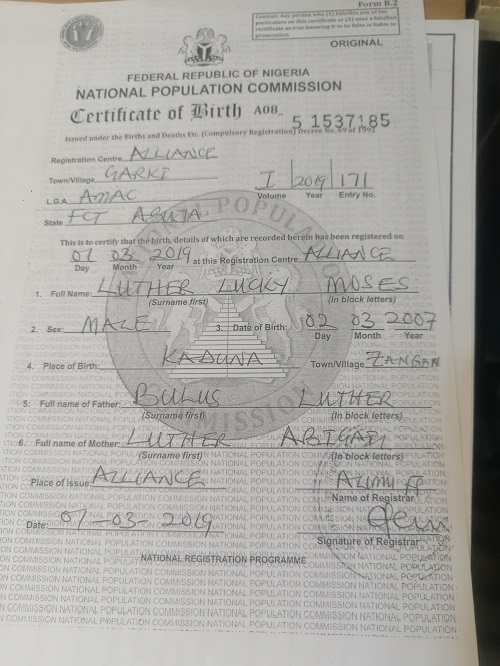 Form B.2
Caution: Any person who (1) falsifies any of the
particulars on this certificate or (2) uses a falsified
certificate as true knowing it to be false is liable to
prosecution
ORIGINAL
FEDERAL REPUBLIC OF NIGERIA
NATIONAL POPULATION COMMISSION
Certificate of Birth A08_ 5 1537185
Issued under the Births and Deaths Etc. (Compulsory Registration) Decree No. 69 of 1992
Registration Centre ALLIANCE
Town/Village GARKI
L.G.A. AMAC
State FCT ABUJA
I 2019 171
Volume Year Entry No.
This is to certify that the birth, details of which are recorded herein has been registered on
07 03 2019 at this Registration Centre ALLIANCE
Day Month Year
1. Full Name: LUTHER LUCKY MOSES
(Surname first) (In block letters)
2. Sex: MALE 3. Date of Birth: 02 03 2007
Day Month Year
4. Place of Birth: KADUNA Town/Village
5. Full name of Father: BULUS LUTHER
(Surname first) (In block letters)
6. Full name of Mother: LUTHER
(Surname first) (In block letters)
Place of issue: ALLIANCE
Name of Registrar
Date: 07-03-2019
Signature of Registrar
NATIONAL REGISTRATION PROGRAMME